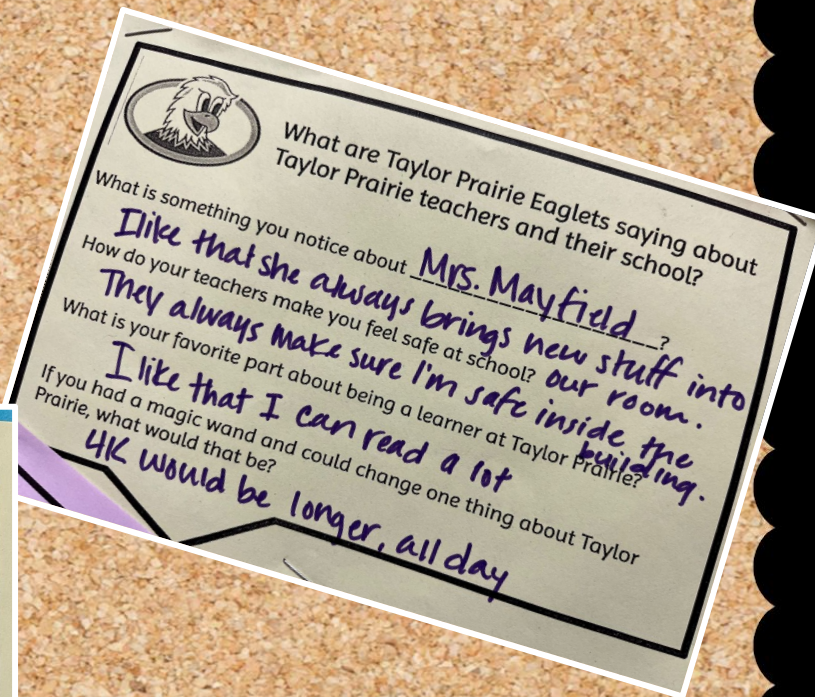 What are Taylor Prairie Eaglets saying about
Taylor Prairie teachers and their school?
What is something you notice about Mrs. Mayfield?
I like that she always brings new stuff into
our room.
How do your teachers make you feel safe at school?
They always make sure I'm safe inside the
building.
What is your favorite part about being a learner at Taylor Prairie?
I like that I can read a lot
If you had a magic wand and could change one thing about Taylor
Prairie, what would that be?
4K would be longer, all day